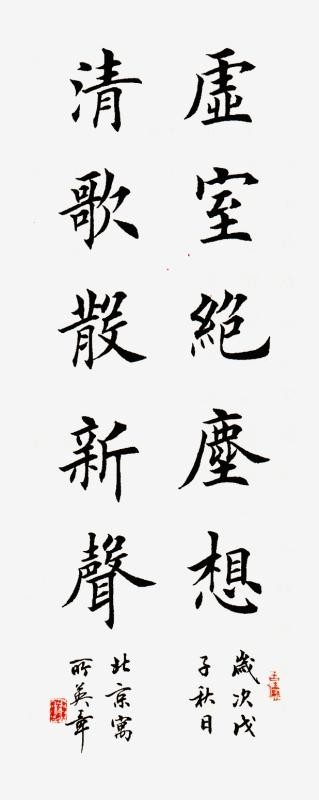 虛室絕塵想
歲次戊
子秋日
清歌散新聲
北京寓
所英章